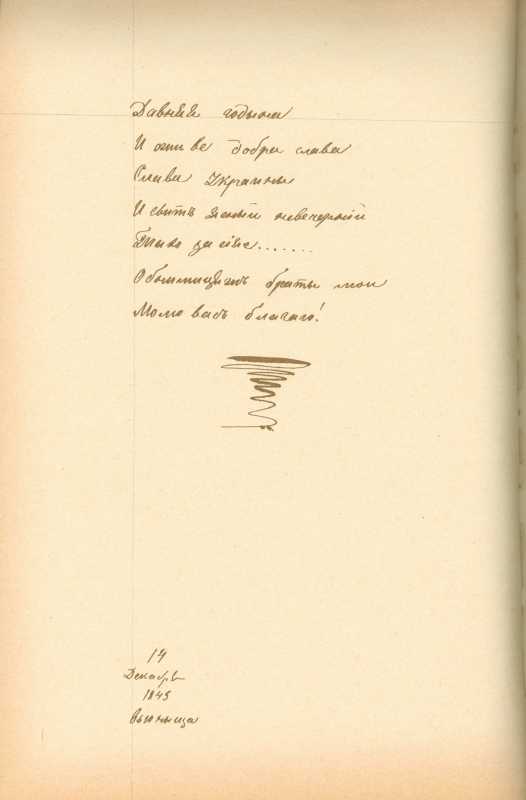 Давнеи годыны
И оживе добра слава
Слава Украины
И свитъ ясный невечерний
Тихо засіяе.......
Обнимицяжъ браты мои
Молю васъ благаю!
14
Декабр
1845
Вьюныща